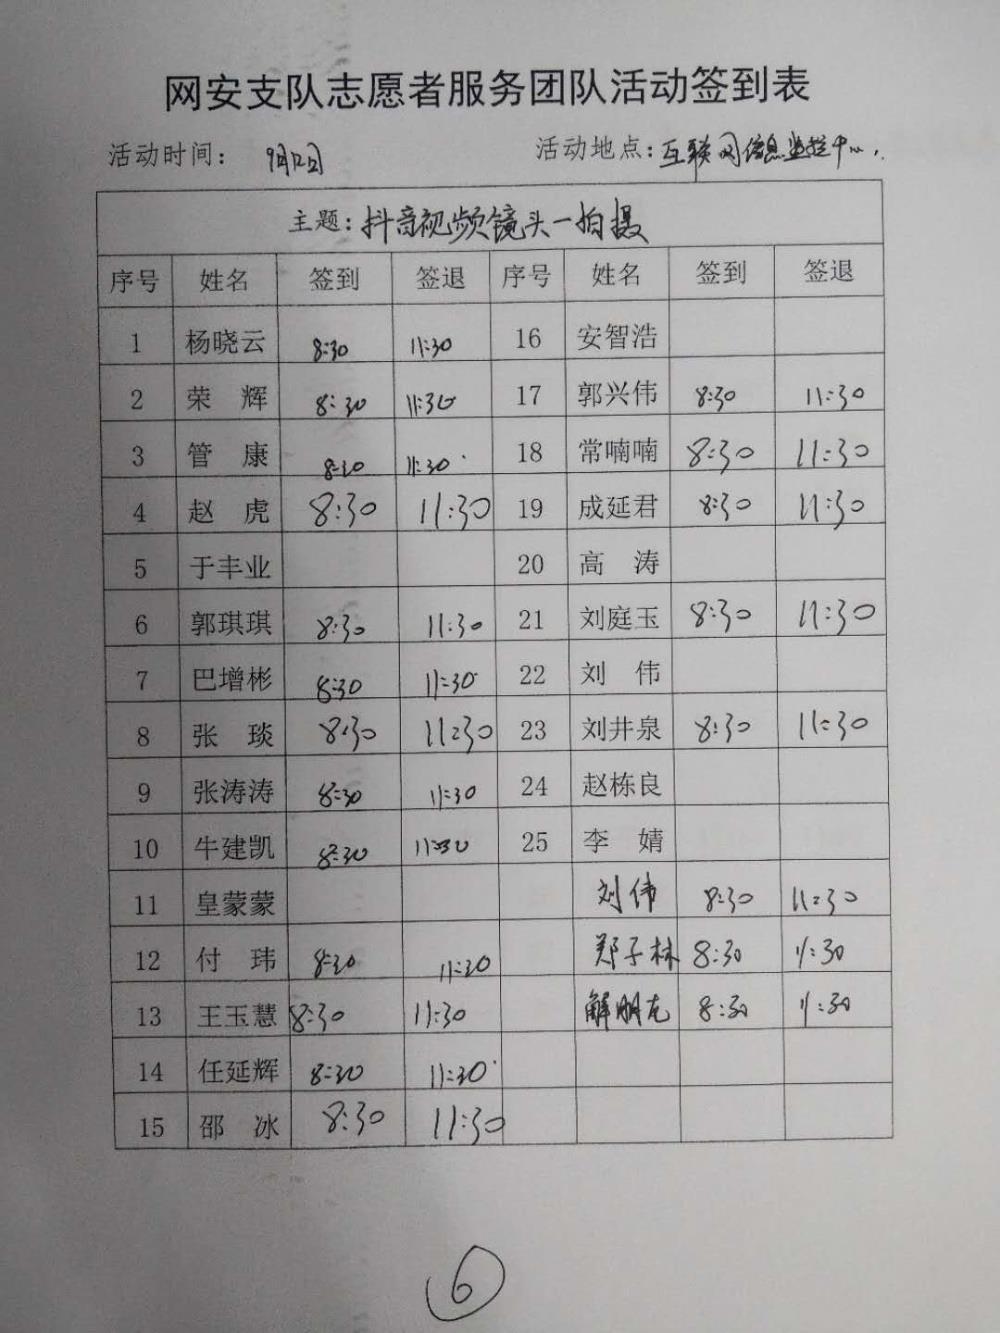 网安支队志愿者服务团队活动签到表
活动时间： 9月12日 活动地点：互联网信息监控中心.
主题：抖音视频镜头一拍摄
序号 姓名 签到 签退 序号 姓名 签到 签退
1 杨晓云 8:30 11:30 16 安智浩
2 荣 辉 8:30 11:30 17 郭兴伟 8:30 11:30
3 管 康 8:30 11:30 18 常喃喃 8:30 11:30
4 赵 虎 8:30 11:30 19 成延君 8:30 11:30
5 于丰业 20 高 涛
6 郭琪琪 8:30 11:30 21 刘庭玉 8:30 11:30
7 巴增彬 8:30 11:30 22 刘 伟
8 张 琰 8:30 11:30 23 刘井泉 8:30 11:30
9 张涛涛 8:30 11:30 24 赵栋良
10 牛建凯 8:30 11:30 25 李 婧
11 皇蒙蒙 刘伟 8:30 11:30
12 付 玮 8:30 11:30 郑子林 8:30 11:30
13 王玉慧 8:30 11:30 解朋友 8:30 11:30
14 任延辉 8:30 11:30
15 邵 冰 8:30 11:30
6